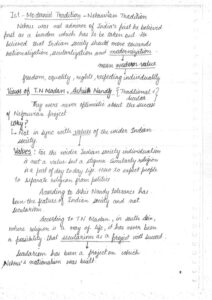 1st - Modernist Tradition - Nehruvian Tradition
Nehru was not admirer of India's past he believed
past as a burden which has to be taken out. He
believed that Indian society should move towards
rationalization, secularization and modernization
modern value
freedom, equality, rights, respecting individuality
Views of T.N Madan, Ashish Nandy (Traditional
They were never optimistic about the success
of Nehruvian project
Why?
Not in sync with values of the wider Indian
society.
Values : For the wider Indian society individualism
is not a value but a stigma. Similarly religion
is a part of day today life. Here to expect people
to separate religion from politics
According to Ashis Nandy tolerance has
been the feature of Indian society and not
secularism.
According to T.N Madan, in south asia,
where religion is a way of life, it has never been
a possibility that secularism as a project will succeed.
Secularism has been a project on which
Nehru's nationalism was built